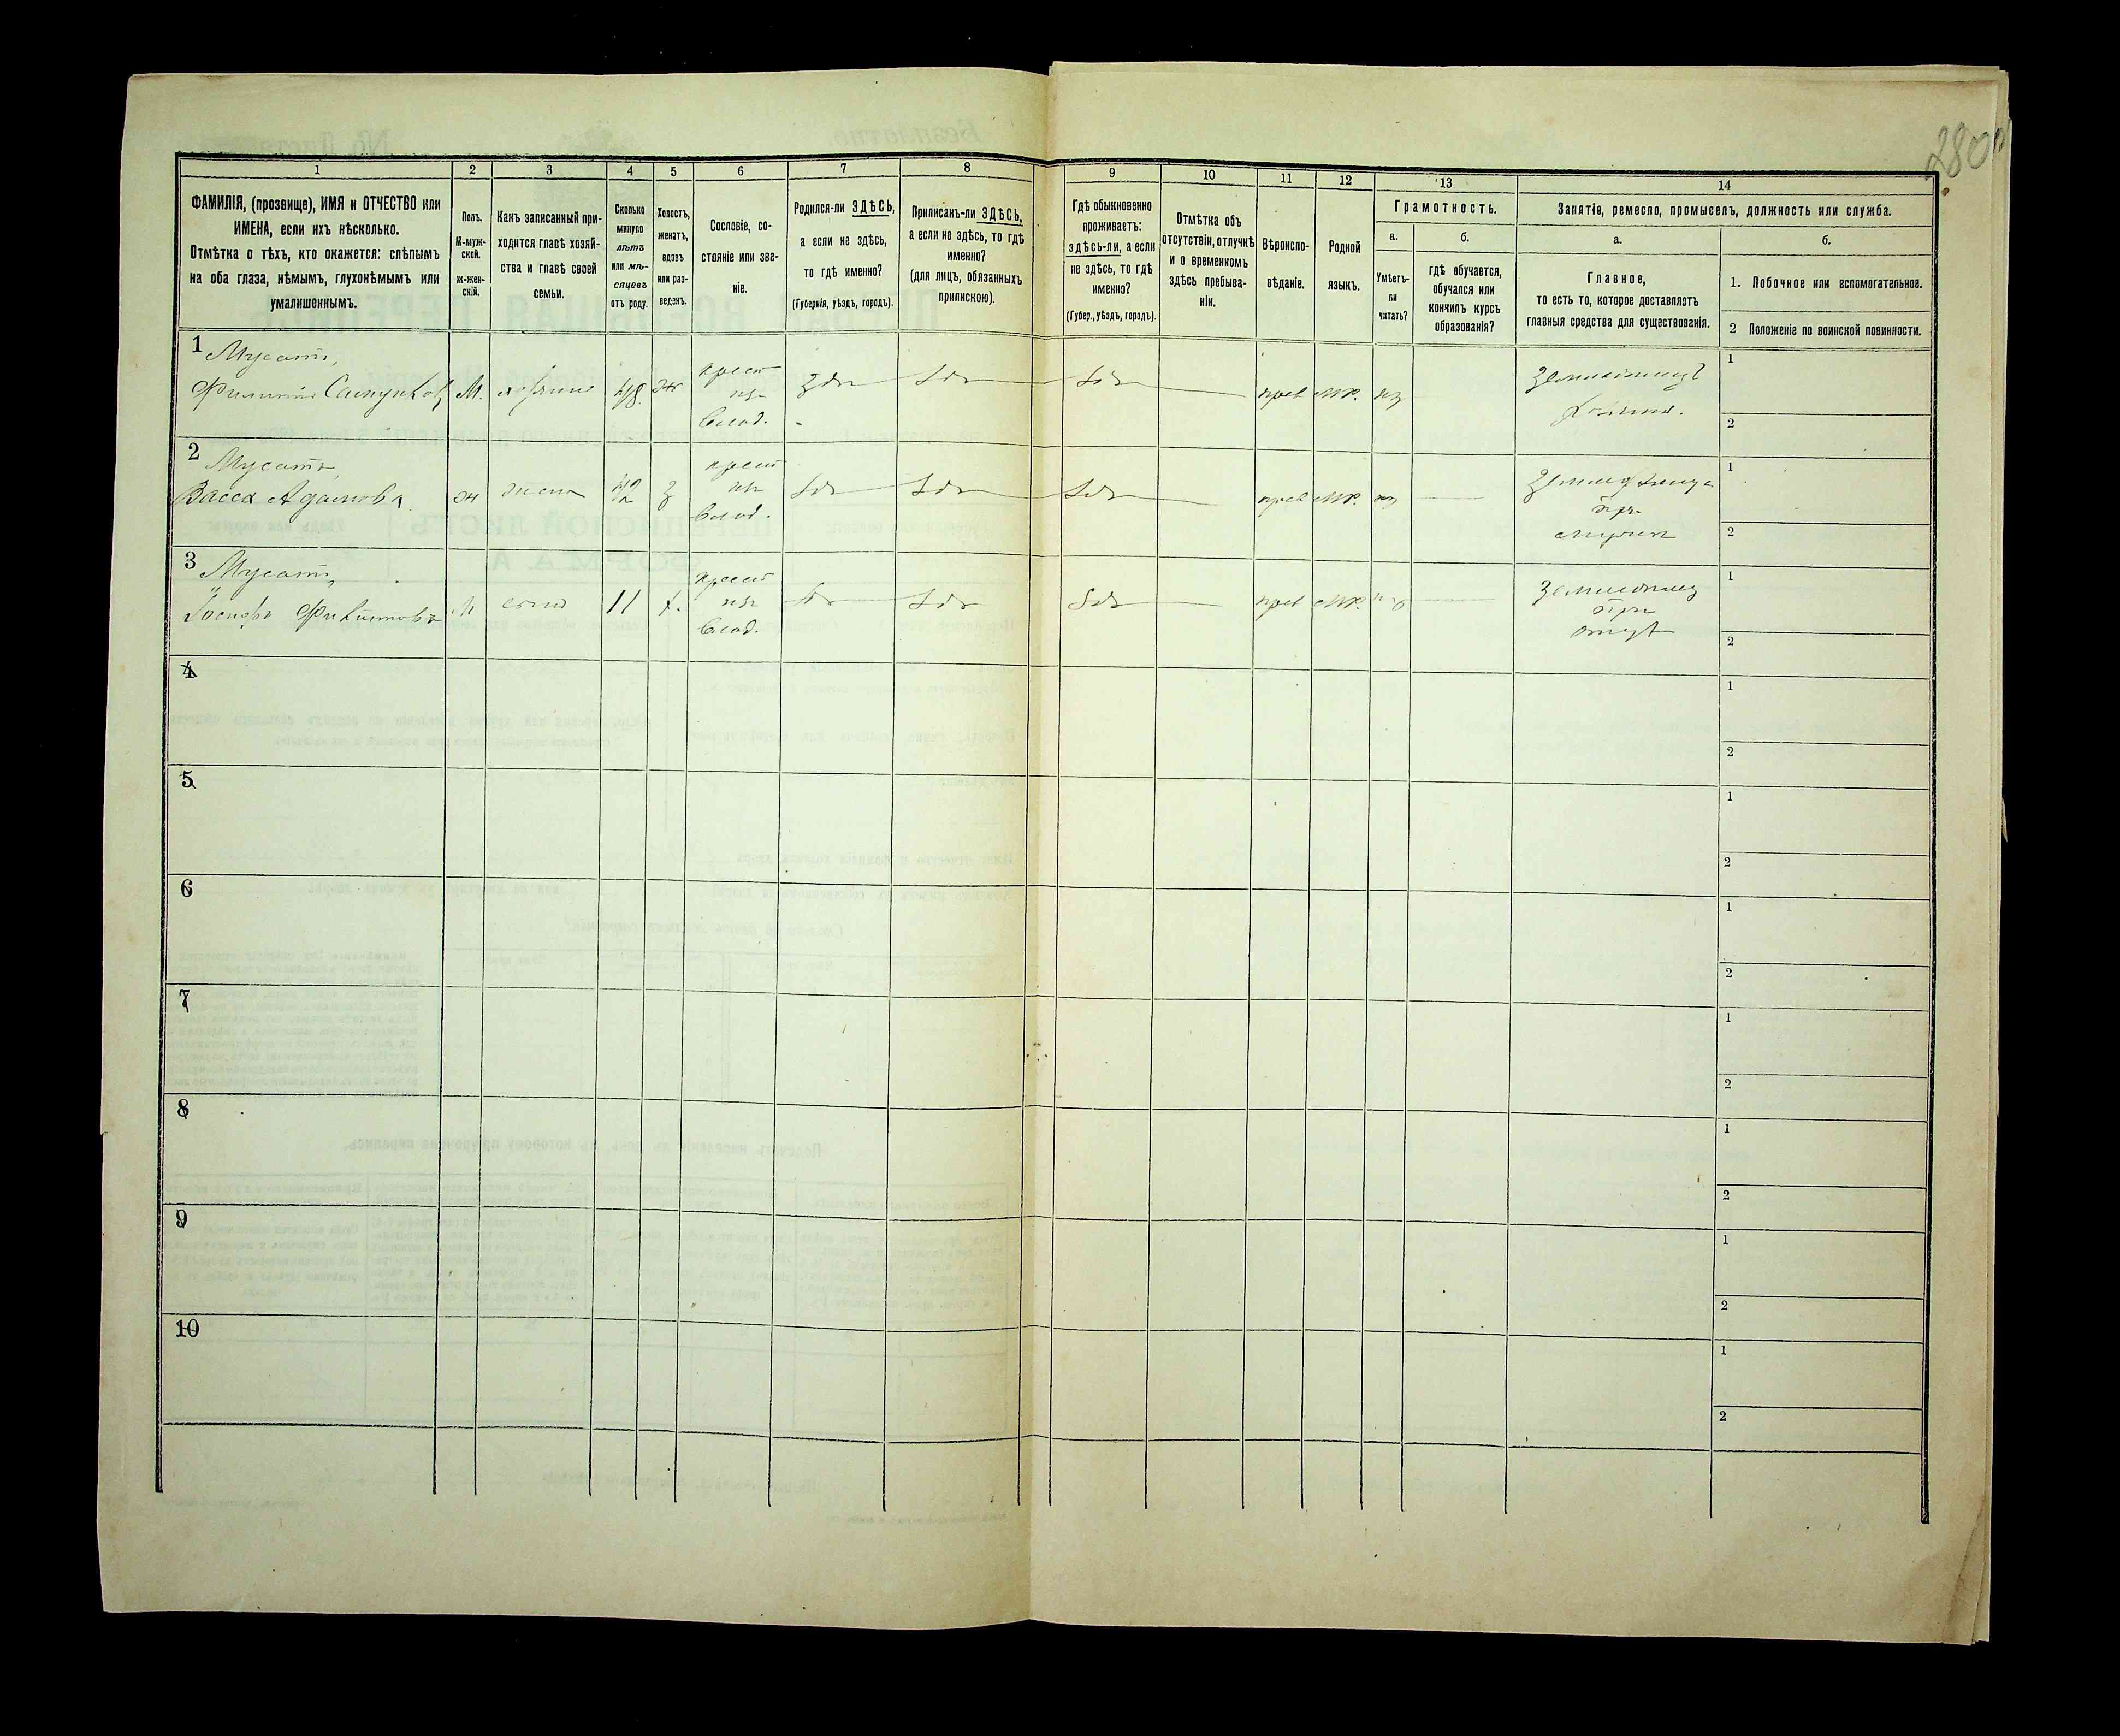 280
1
2
3
4
5
6
7
8
9
10
11
12
13
14
ФАМИЛІЯ, (прозвище), ИМЯ и ОТЧЕСТВО или
ИМЕНА, если ихъ нѣсколько.
Отмѣтка о тѣхъ, кто окажется: слѣпымъ
на оба глаза, нѣмымъ, глухонѣмымъ или
умалишеннымъ.
Полъ.
М-муж-
ской.
Ж-жен-
скій.
Какъ записанный при-
ходится главѣ хозяй-
ства и главѣ своей
семьи.
Сколько
минуло
лѣтъ
или мѣ-
сяцевъ
отъ роду.
Холостъ,
женатъ,
вдовъ
или раз-
веденъ.
Сословіе, со-
стояніе или зва-
ніе.
Родился-ли ЗДѢСЬ,
а если не здѣсь,
то гдѣ именно?
(Губернія, уѣздъ, городъ).
Приписанъ-ли ЗДѢСЬ,
а если не здѣсь, то гдѣ
именно?
(для лицъ, обязанныхъ
припискою).
Гдѣ обыкновенно
проживаетъ:
здѣсь-ли, а если
не здѣсь, то гдѣ
именно?
(Губер., уѣздъ, городъ).
Отмѣтка объ
отсутствіи, отлучкѣ
и о временномъ
здѣсь пребыва-
ніи.
Вѣроиспо-
вѣданіе.
Родной
языкъ.
Грамотность.
а.
Умѣетъ-
ли
читать?
б.
гдѣ обучается,
обучался или
кончилъ курсъ
образованія?
Занятіе, ремесло, промыселъ, должность или служба.
а.
Главное,
то есть то, которое доставляетъ
главныя средства для существованія.
б.
1. Побочное или вспомогательное.
2 Положеніе по воинской повинности.
1
Мусатъ,
М.
хозяинъ
48
ж
крест
изъ
влад.
здѣ
здѣ
здѣ
прав
мр.
1
2
2
Мусатъ
Васса Адамова
ж
жена
42
з
крест
изъ
влад.
здѣ
здѣ
здѣ
прав
мр.
при
мужѣ
1
2
3
Мусатъ,
Іосифъ
М
сынъ
11
х.
крест
изъ
влад.
здѣ
здѣ
здѣ
прав
мр.
при
отцѣ
1
2
4
1
2
5
1
2
6
1
2
7
1
2
8
1
2
9
1
2
10
1
2